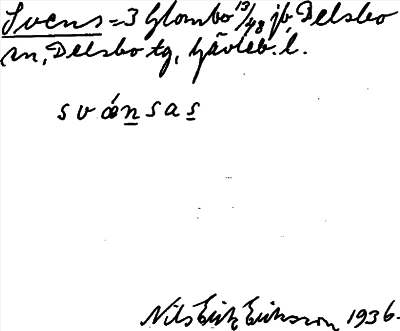 Svens = 3 Glombo 13/48 jb Delsbo
sn, Delsbo tg, Gävleb. l.
s v ǿ n s a s
Nils Erik Eriksson 1936.